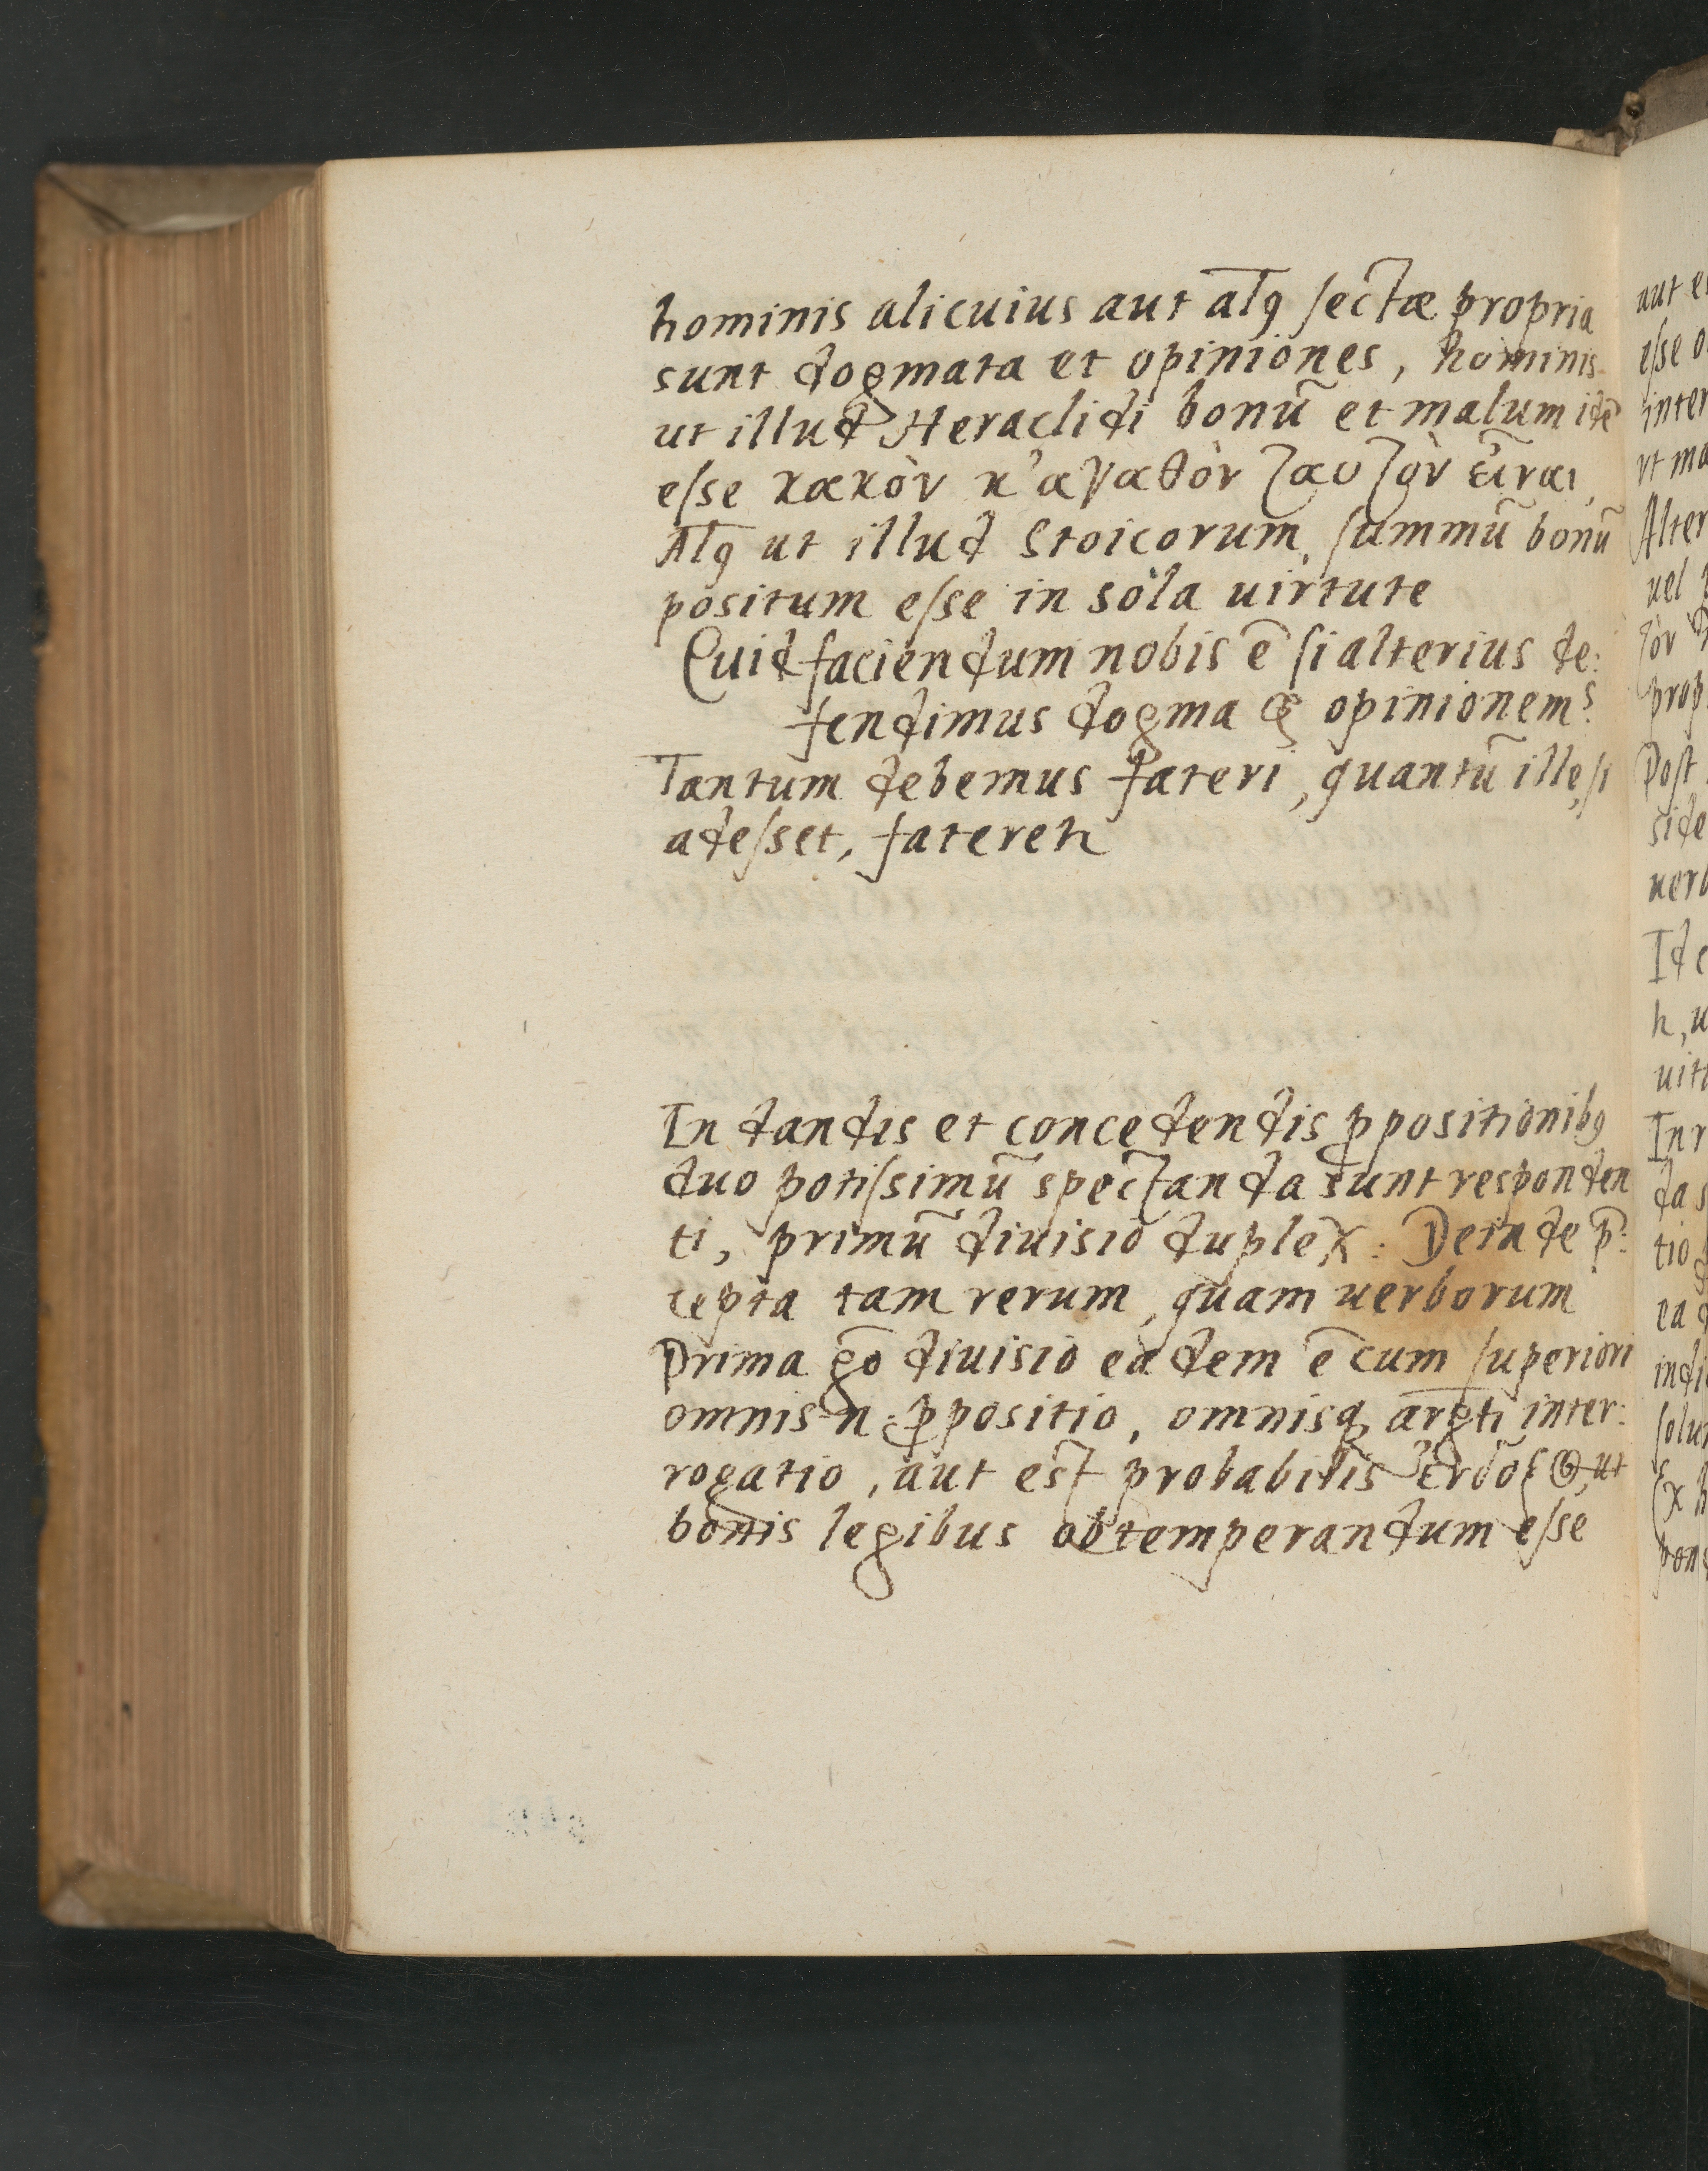 hominis alicuius aut atq̨ sectæ propria
sunt dogmata et opiniones, hominis
ut illud Heraclidi bonū et malum idē
esse κακὸν κ'ἀγαθὸν ταυτὸν εἶναι,
Atq̨ ut illud Stoicorum, summū bonū
positum esse in sola uirtute
Quid faciendum nobis ē si alterius de:
fendimus dogma opinionem?
Tantum debemus fateri, quantū ille, si
adesset, fateret᷑
In dandis et concedendis ꝓpositionibꝯ
duo potissimū spectanda sunt responden
ti, primū diuisio duplex: Deinde p̄:
cepta tam rerum, quam uerborum
Prima go̅ diuisio eadem ē cum superiori
omnis n: ꝓpositio, omnisq̨ arg̅ti inter:
rogatio, aut est probabilis ἔνδοξος, ut
bonis legibus obtemperandum esse
aut
esse
inter
Alter
uel
τὸν
prop
Post
side
uerb
Ide
uit
In r
da s
tio
ea
indi
solu
Ex